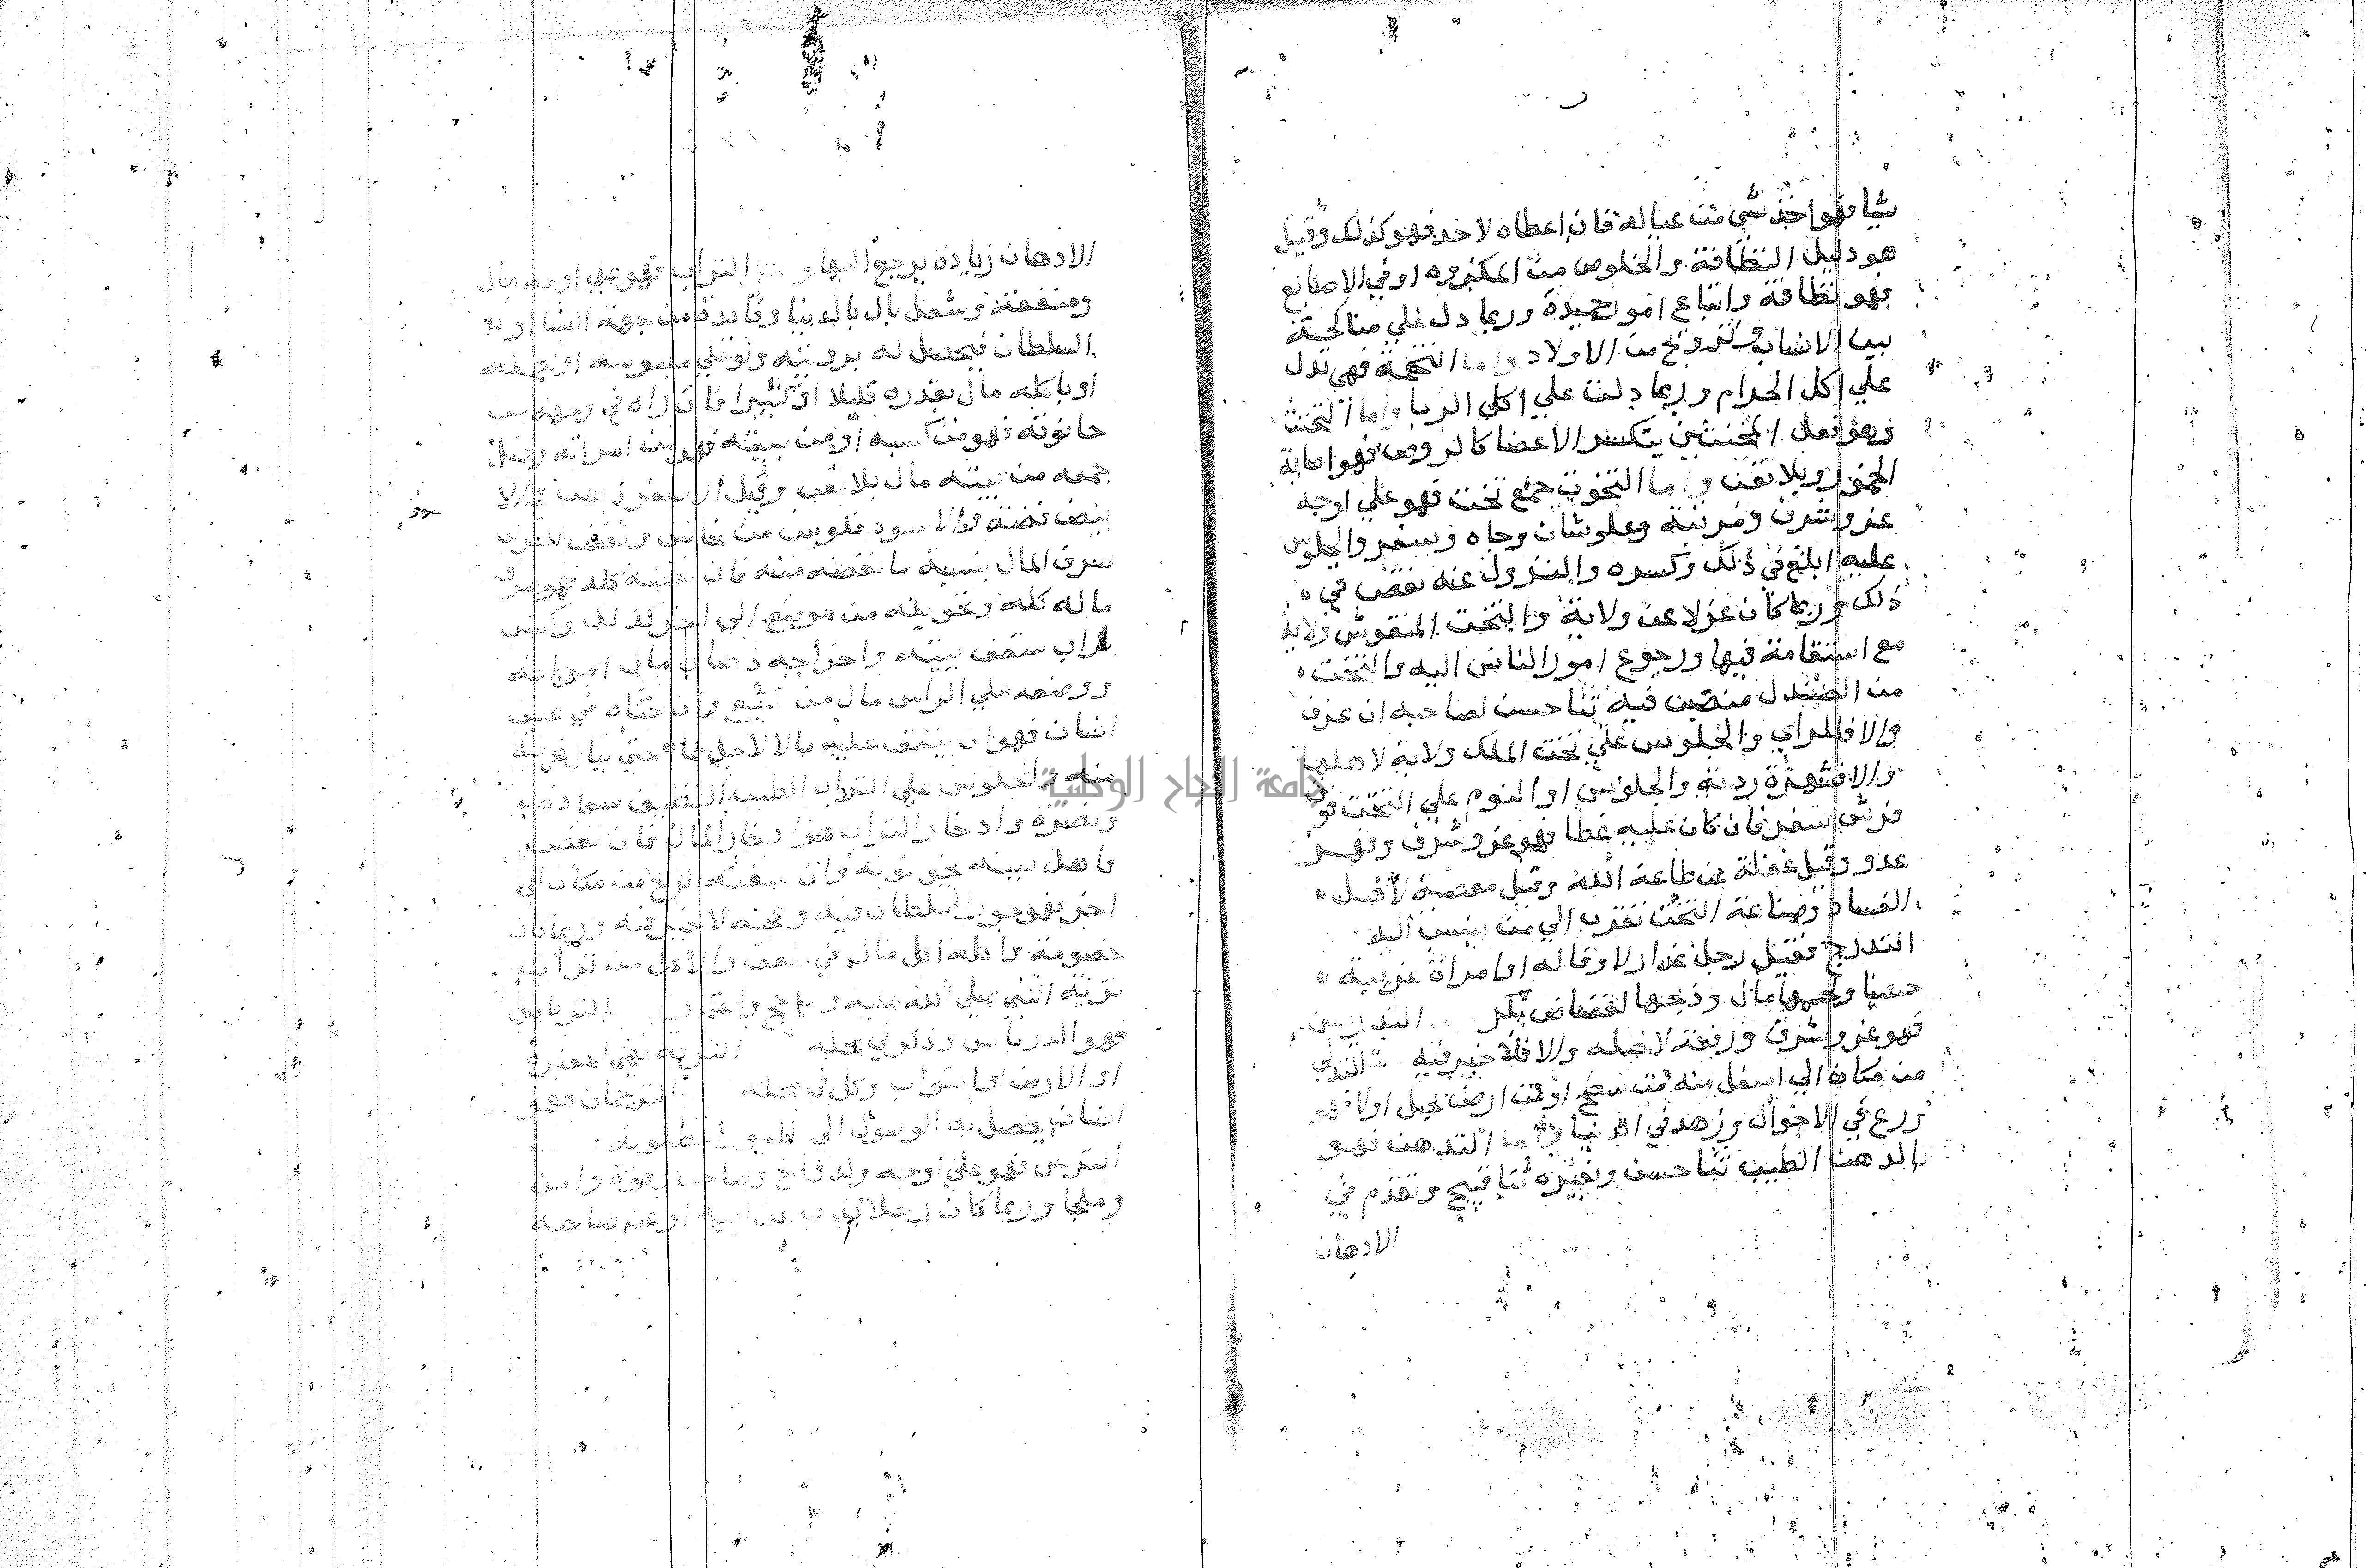 شيا فهو اخذ شي من عياله فان اعطاه لاحد فهو كذلك وقيل
هو دليل النظافة والخلوص من المكروه او في الاصابع
فهو نظافة واتباع امور حميدة وربما دل علي مناكحة
بين الانساب وتزويج من الاولاد واما التخمة فهي تدل
علي اكل الحرام وربما دلت علي اكل الربا واما التخنث
وهو فعل المخنثين يتكسر الاعضا كالرقص فهو اصابة
الخمور وبلا تعب واما التخوت جمع تخت فهو علي اوجه
عز وشرف ومرتبة وعلو شان وجاه وسفر والجلوس
عليه ابلغ في ذلك وكسره والنزول عنه نقص في
ذلك وربما كان عزلا عن ولاية والتخت المنقوش ولاية
مع استقامة فيها ورجوع امور الناس اليه والتخت
من الصندل منصب فيه ثنا حسن لصاحبه ان عرف
والا فللراي والجلوس علي تخت الملك ولاية لاهلها
والا فشهرة ردية والجلوس او النوم علي التخت فو
فرش سفر فان كان عليه غطا فهو عز وشرف وقهر
عدو وقيل غفلة عن طاعة الله وقيل معصية لاهل
الفساد وصناعة التخت تقرب الي من ينسب اليه
التدرج فقيل رجل غدار لا وفا له او امراة غريبة
حسنا ولحمها مال وذبحها افتضاض بكر التدريس
فهو عز وشرف ورفعة لاهله والا فلا خير فيه التدلي
من مكان الي اسفل منه من سطح او من ارض لجبل اولا فهو
ورع في الاحوال وزهد في الدنيا واما التدهن فهو
بالدهن الطيب ثنا حسن وبغيره ثنا قبيح وتقدم في
الادهان
الادهان زيادة يرجع اليها التراب فهو علي اوجه مال
ومنفعة وشغل بال بالدنيا وفايدة من جهة النسا
السلطان فيحصل له برويته ولو علي ملبوسه او يحمله
او ياكله مال بقدره قليلا او كثيرا فان راه في وجهه
حانوته فهو من كسبه او من بيته فهو من امراته وقيل
جمعه من بيته مال بلا تعب وقيل الاصفر ذهب والا
بيض فضة والاسود فلوس من نحاس
سرق المال بنسبة ما نقصه منه فان
ماله كله وتحويله من موضع الي اخر كذلك وكنس
تراب سقف بيته واخراجه ذهاب مال امراته
ووضعه علي الراس مال من
انسان فهو ان ينفق عليه مالا لاجل حتي ينال غرضه
منه والجلوس علي التراب الطيب النظيف سعادة
ونصرة وادخار التراب هو ادخار المال فان
اخر فهو جور السلطان فيه لا خير فيه وربما كان
خصومة واكله اكل مال في والاكل من تراب
تربة النبي صلي الله عليه و الترباس
فهو الدرباس وذكر في محله التربة فهي المقبرة
او الارض او التراب وكل في محله الترجمان فهو
انسان يحصل به الوصول الي
الترس فهو علي اوجه ولد وقوة وامن
وملجا وربما كان رجلا يذب عن او عن صاحبه
جامعة النجاح الوطنية